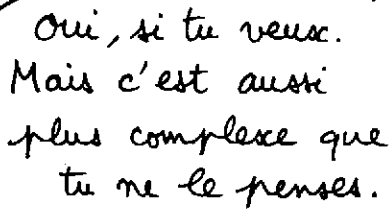 Oui, si tu veux.
Mais c'est aussi
plus complexe que
tu ne le penses.